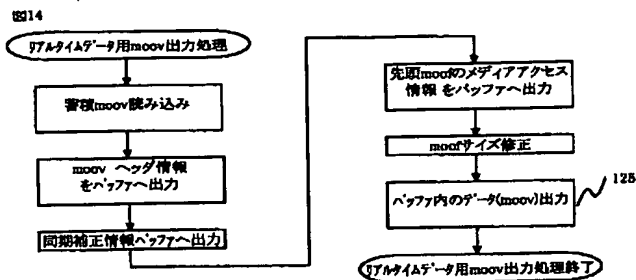 図14
リアルタイムデータ用moov出力処理
蓄積moov読み込み
moov ヘッダ情報
をバッファへ出力
同期補正情報バッファへ出力
先頭moofのメディアアクセス
情報をバッファへ出力
moofサイズ修正
バッファ内のデータ(moov)出力
125
リアルタイムデータ用moov出力処理終了